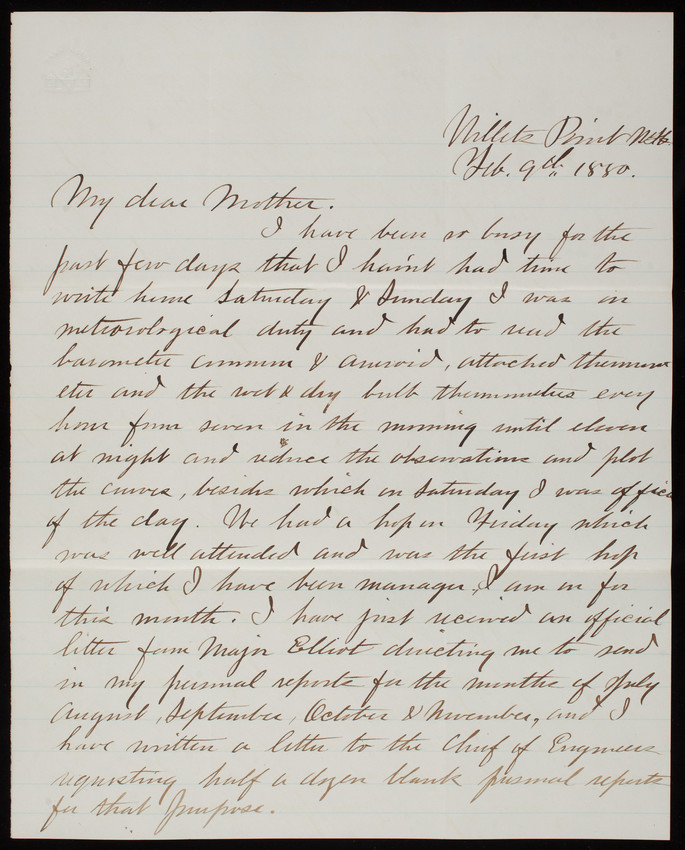 Willets Point
Feb. 9th 1880.
My dear Mother.
I have been so busy for the
past few days that I hav'nt had time to
write home Saturday & Sunday I was on
meteorological duty and had to read the
barometer common & aneroid, attached thermom
eter and the wet & dry bulb thermometers every
hour from seven in the morning until eleven
at night and reduce the observations and plot
the curves, besides which on Saturday I was officer
of the day. We had a hop on Friday which
was well attended and was the first hop
of which I have been manager, I am on for
this month. I have just received an official
letter from Major Elliot directing me to send
in my personal reports for the months of July
August, September, October & November, and I
have written a letter to the Chief of Engineers
requesting half a dozen blank personal reports
for that purpose.